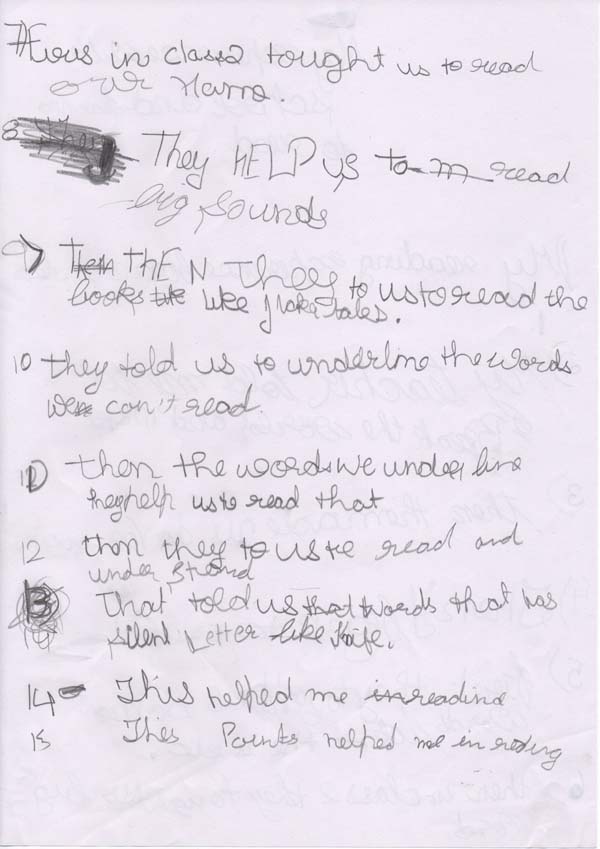 in class2 tought us to read
our Name.
8 They HELP us to read
big sounds
9) thEN they to us to read the
books like fake tales.
10 they told us to underline the words
we can't read.
11) then the words we under line
they help us to read that
12 then they to us to read and
under strond
13 That told us that words that has
silent Letter like Kife.
14 This helped me in readine
15 Thies Points helped me in reding